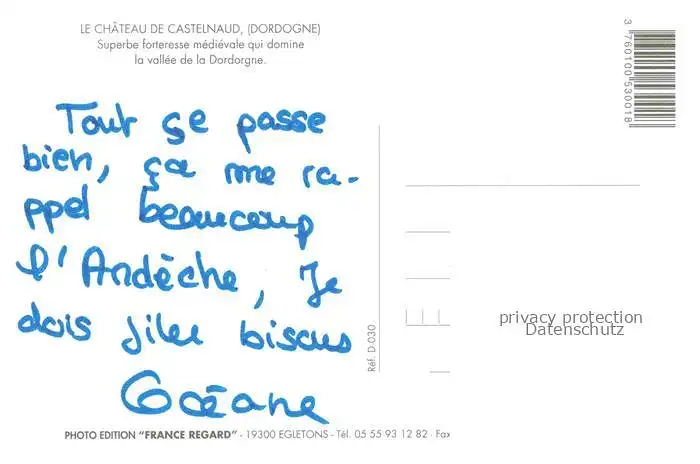 LE CHÂTEAU DE CASTELNAUD, (DORDOGNE)
Superbe forteresse médiévale qui domine
la vallée de la Dordorgne.
3 760100 530018
Tout se passe
bien, ça me ra-
ppel beaucoup
l'Ardèche, Je
dois filer bisous
Océane
Réf. D 030
privacy protection
Datenschutz
PHOTO EDITION "FRANCE REGARD" - 19300 EGLETONS - Tél. 05 55 93 12 82 - Fax